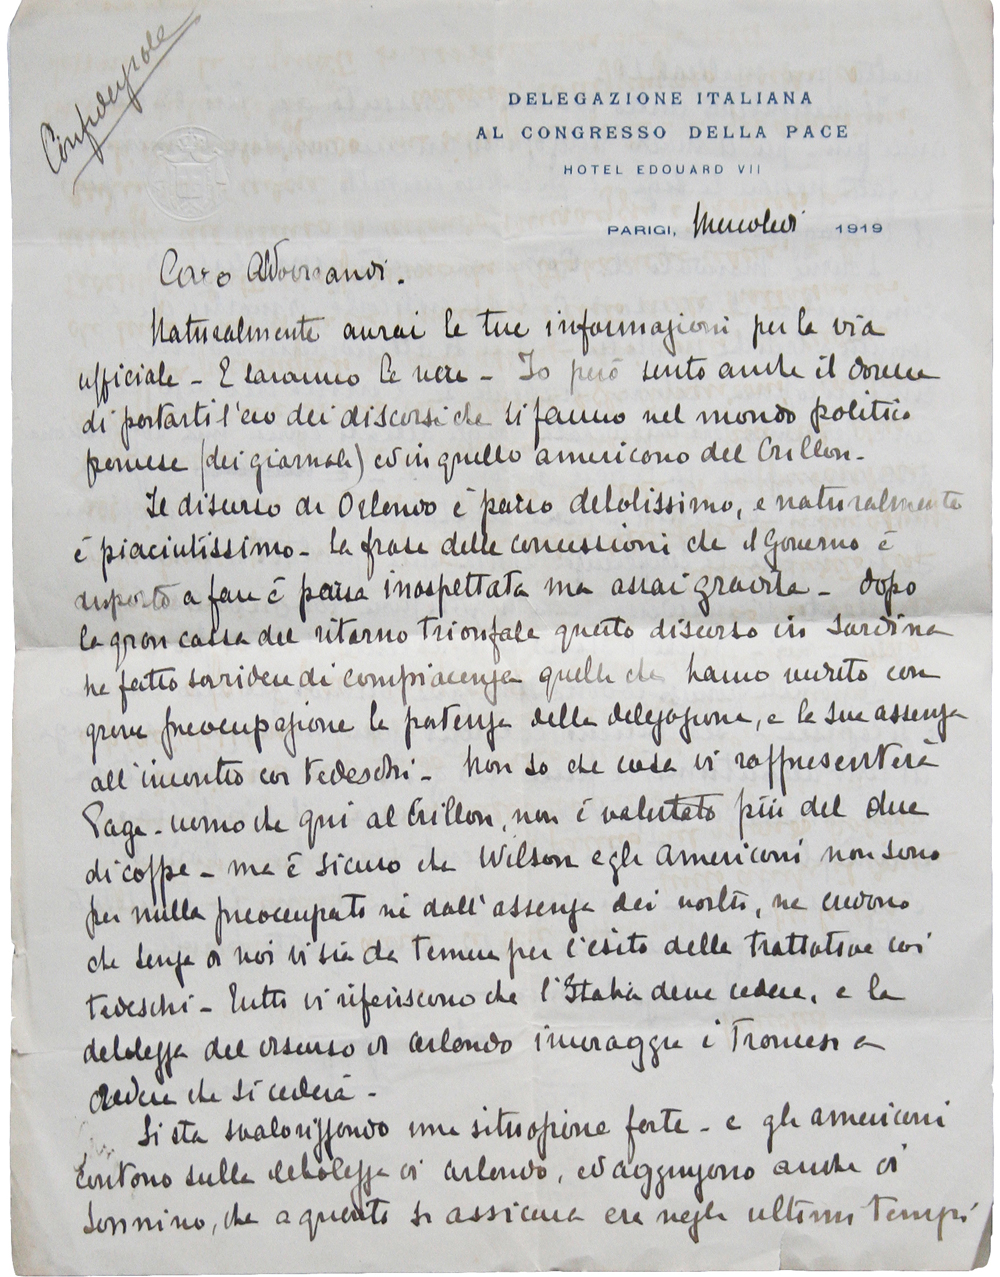 Confidenziale
DELEGAZIONE ITALIANA
AL CONGRESSO DELLA PACE
HOTEL EDOUARD VII
PARIGI, Mercoledì 1919
Caro Aldovrandi.
Naturalmente avrai le tue informazioni per la via
ufficiale - E saranno le vere - Io però sento anche il dovere
di portarti l'eco dei discorsi che si fanno nel mondo politico
francese (dei giornali) ed in quello americano del Crillon -
Il discorso di Orlando è parso debolissimo, e naturalmente
è piaciutissimo - la frase delle concessioni che il Governo è
disposto a fare è parsa inaspettata ma assai gradita - dopo
la gran cassa del ritorno trionfale questo discorso in sordina
ha fatto sorridere di compiacenza quelli che hanno veduto con
grave preoccupazione la partenza della delegazione, e la sua assenza
all'incontro coi tedeschi - Non so che cosa vi rappresenterà
Page - uomo che qui al Crillon, non è valutato più del due
di coppe - ma è sicuro che Wilson e gli Americani non sono
per nulla preoccupati nè dall'assenza dei nostri, ne credono
che senza di noi vi sia da temere per l'esito delle trattative coi
tedeschi - Tutti vi riferiscono che l'Italia deve cedere, e la
debolezza del discorso di Orlando incoraggia i francesi a
credere che si cederà -
Si sta svalorizzando una situazione forte - e gli americani
contano sulla debolezza di Orlando, ed aggiungono anche di
Sonnino, che a quanto si assicura era negli ultimi tempi